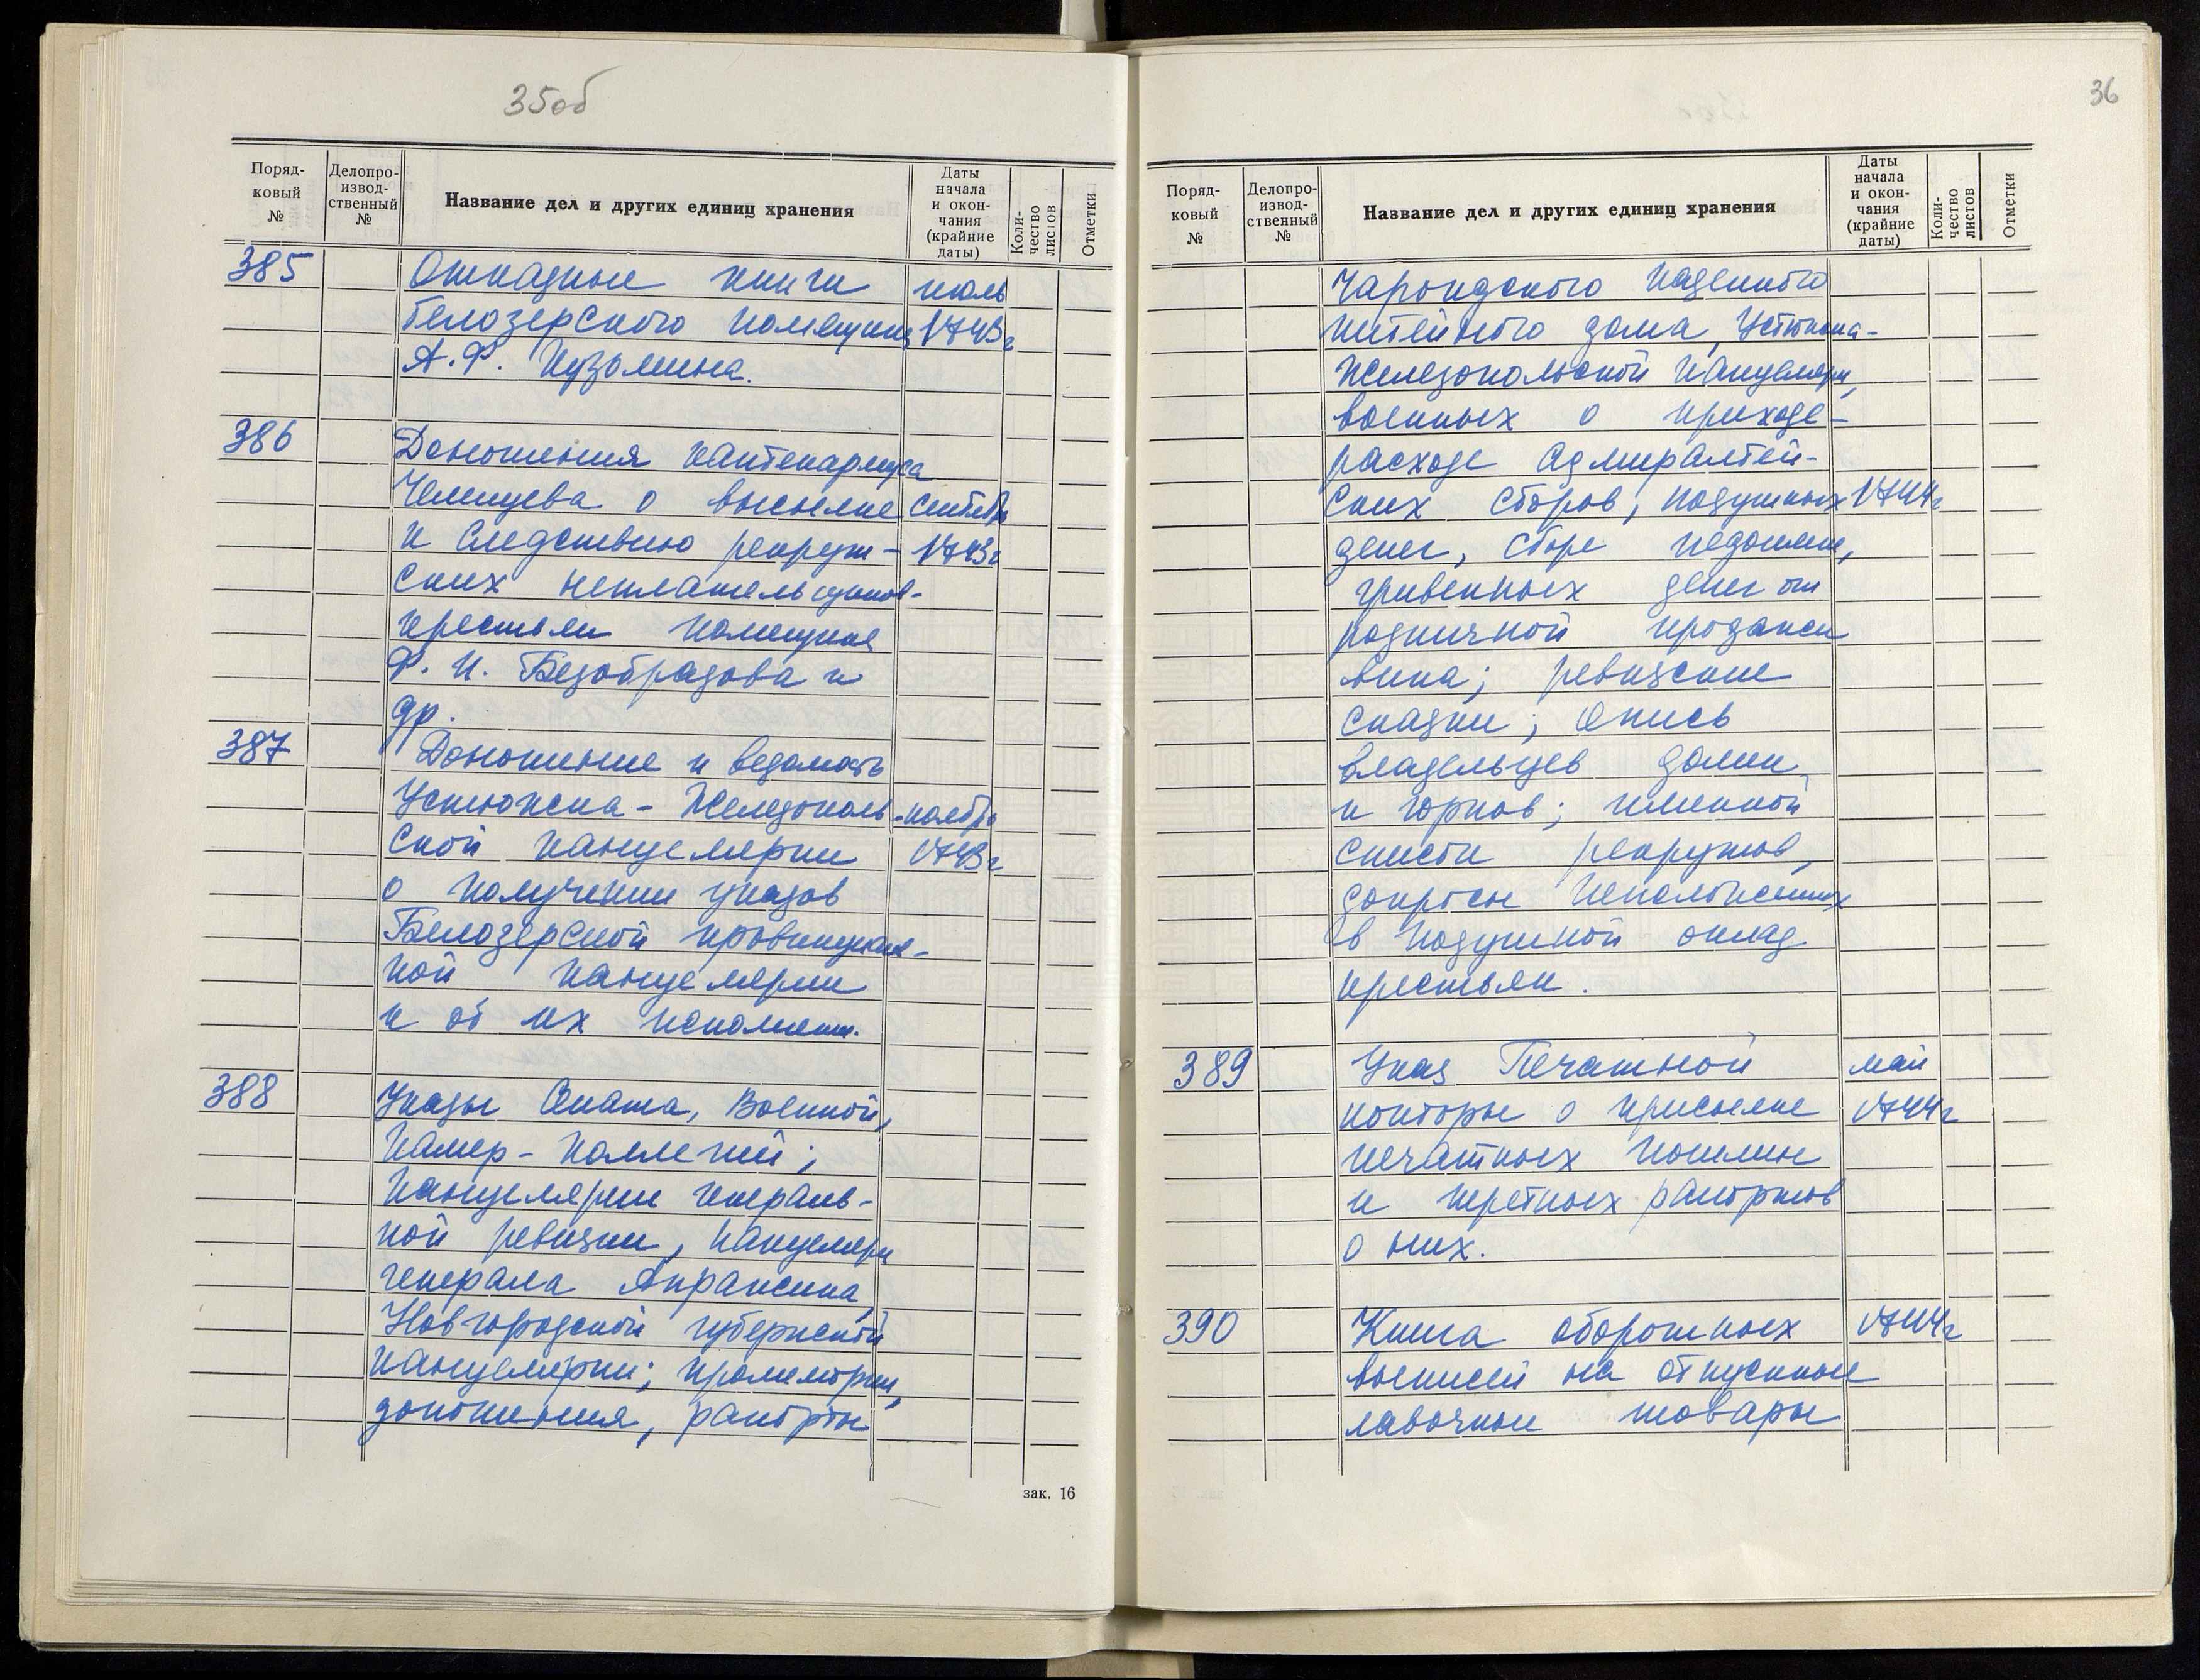 35об
Поряд-
ковый
№
Делопро-
извод-
ственный
№
Название дел и других единиц хранения
Даты
начала
и окон-
чания
(крайние
даты)
Коли-
чество
листов
Отметки
385 Отказные книги июль
белозерского помещика 1743г
А.Ф. Кузьмина.
386
Доношения каптенармуса
Челищева о высылке сентябрь
к следствию рекрут- 1743г
ских неплательщиков-
крестьян помещика
Ф. И. Безобразова и
др.
387 Доношение и ведомость
Устюжена-Железополь- ноябрь
ской канцелярии 1743г
о получении указов
Белозерской провинциаль-
ной канцелярии
и об их исполнении.
388 Указы Сената, Военной,
Камер-коллегий;
Канцелярии генераль-
ной ревизии, канцелярии
генерала Апраксина,
Новгородской губернской
канцелярии; промемории,
доношения, рапорты
зак. 16
36
Поряд-
ковый
№
Делопро-
извод-
ственный
№
Название дел и других единиц хранения
Даты
начала
и окон-
чания
(крайние
даты)
Коли-
чество
листов
Отметки
Чарондского казенного
питейного дома, Устюжна-
Железопольской канцелярии,
военных о приходе-
расходе адмиралтей-
ских сборов, подушных 1744г
денег, сборе недоимки,
гривенных денег от
розничной продажи
вина; ревизские
сказки; опись
владельцев домен
и горнов; именной
список рекрутов,
допросы неположенных
в подушной оклад
крестьян.
389 Указ Печатной май
конторы о присылке 1744г
печатных пошлин
и третных рапортов
о них.
390 Книга оборотных 1744г
выписей на отпускные
лавочные товары